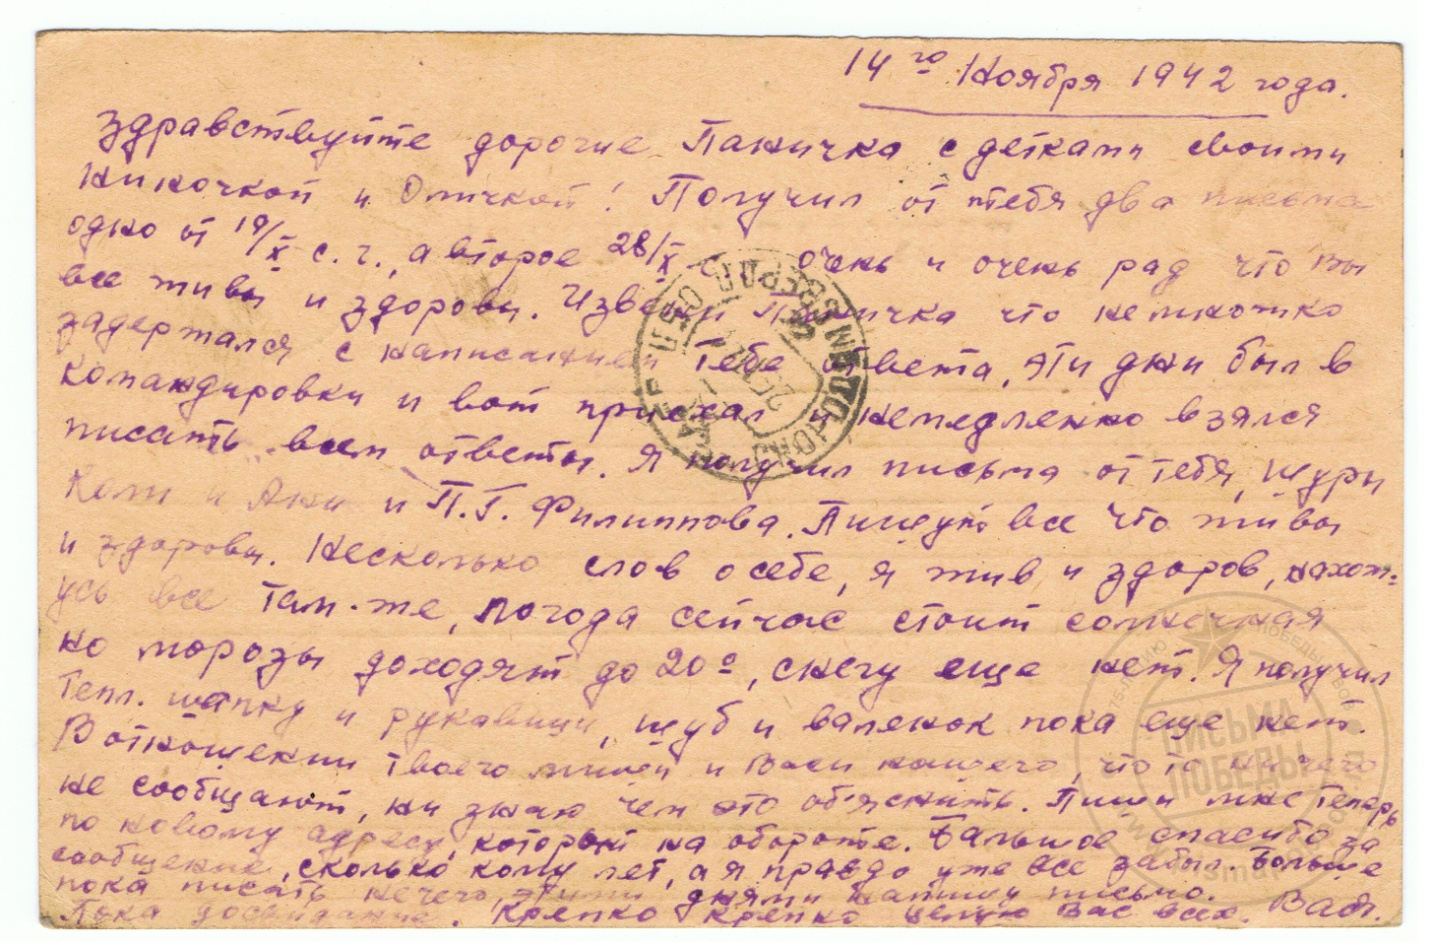 14го Ноября 1942 года.
Здравствуйте дорогие Паничка с детками своими
Ниночкой и Оличкой! Получил от тебя два письма
одно от 19/X с.г., а второе 28/X очень и очень рад что вы
все живы и здоровы. Извени Паничка что немножко
задержался с написанием Тебе ответа, эти дни был в
командировки и вот приехал и немедленно взялся
писать всем ответы. Я получил письма от тебя, Шуры
Коли и Ани и П.Г. Филиппова. Пишут все что живы
и здоровы. Несколько слов о себе, я жив и здоров, нахож-
усь все там-же, погода сейчас стоит солнечная
но морозы доходят до 20°, снегу еще нет. Я получил
тепл. шапку и рукавицы, шуб и валенок пока еще нет.
В отношении твоего Миши и Васи нашего, что то ничего
не сообщают, ни знаю чем это объяснить. Пиши мне теперь
по новому адресу, который на обороте. Большое спасибо за
сообщение, сколько кому лет, а я правдо уже все забыл. Больше
пока писать нечего, этими днями напишу письмо.
Пока досвидание. Крепко крепко целую Вас всех.
ПИСЬМА
ПОБЕДЫ